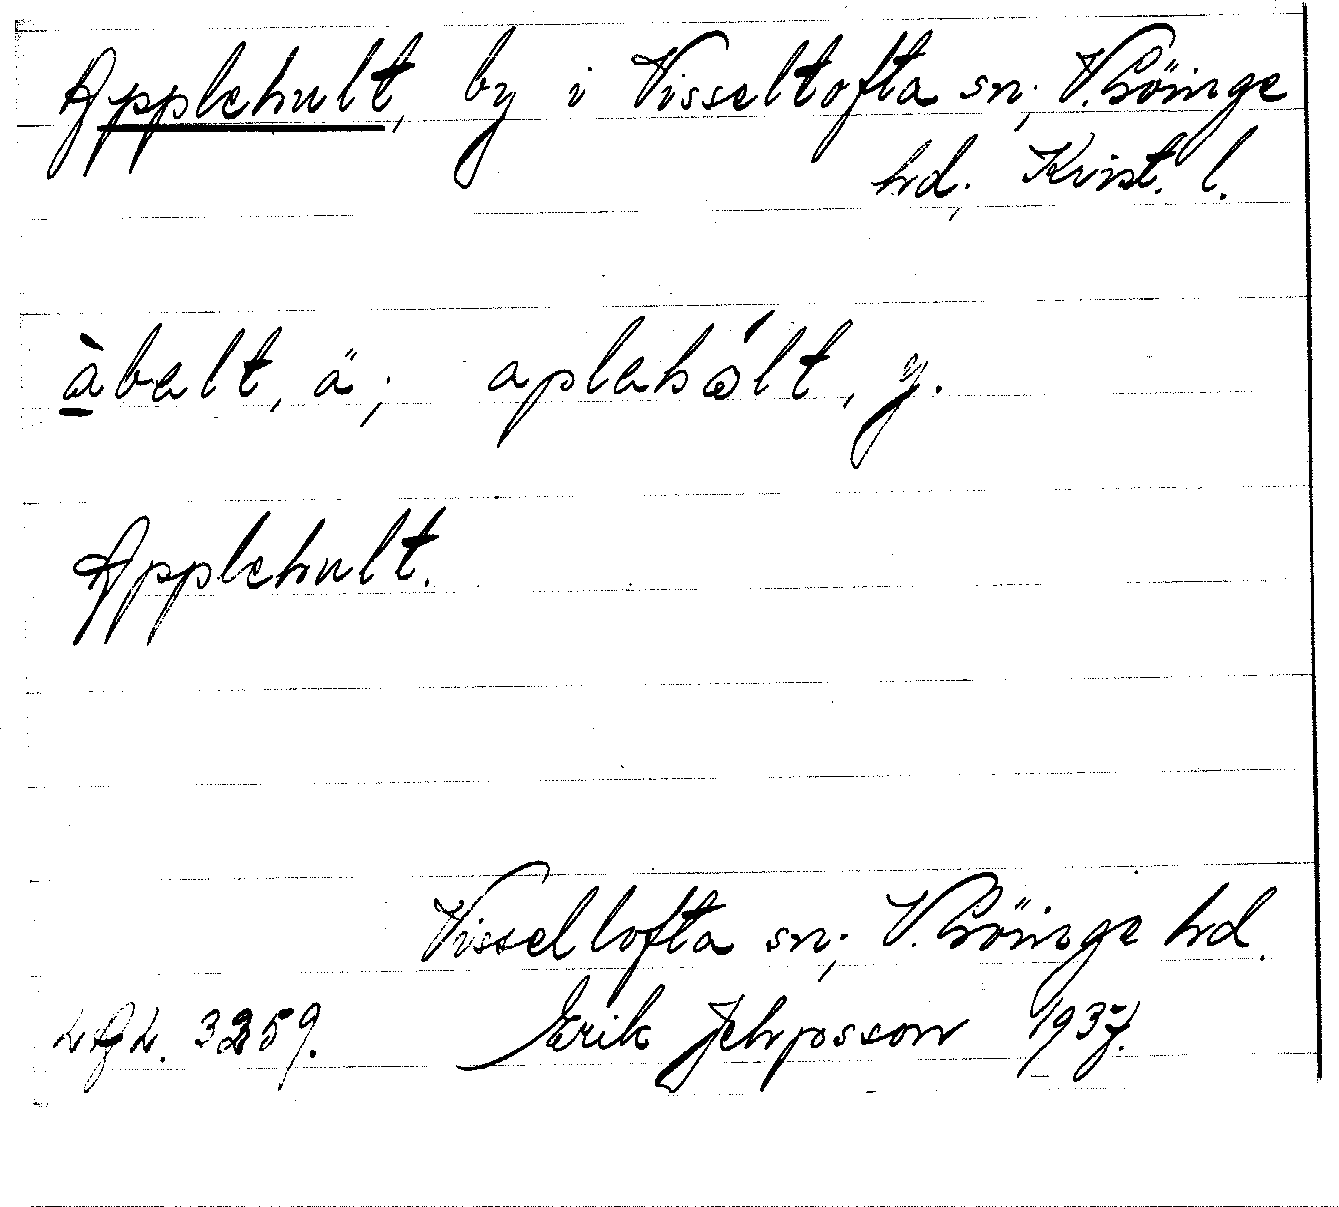 Applehult, by i Visseltofta sn; V. Göinge
hd; Krist. l.
àbalt, ä; aplahólt, y.
Applehult.
Visseltofta sn; V. Göinge hd.
LAL. 3259. Erik Jehpsson 1937.